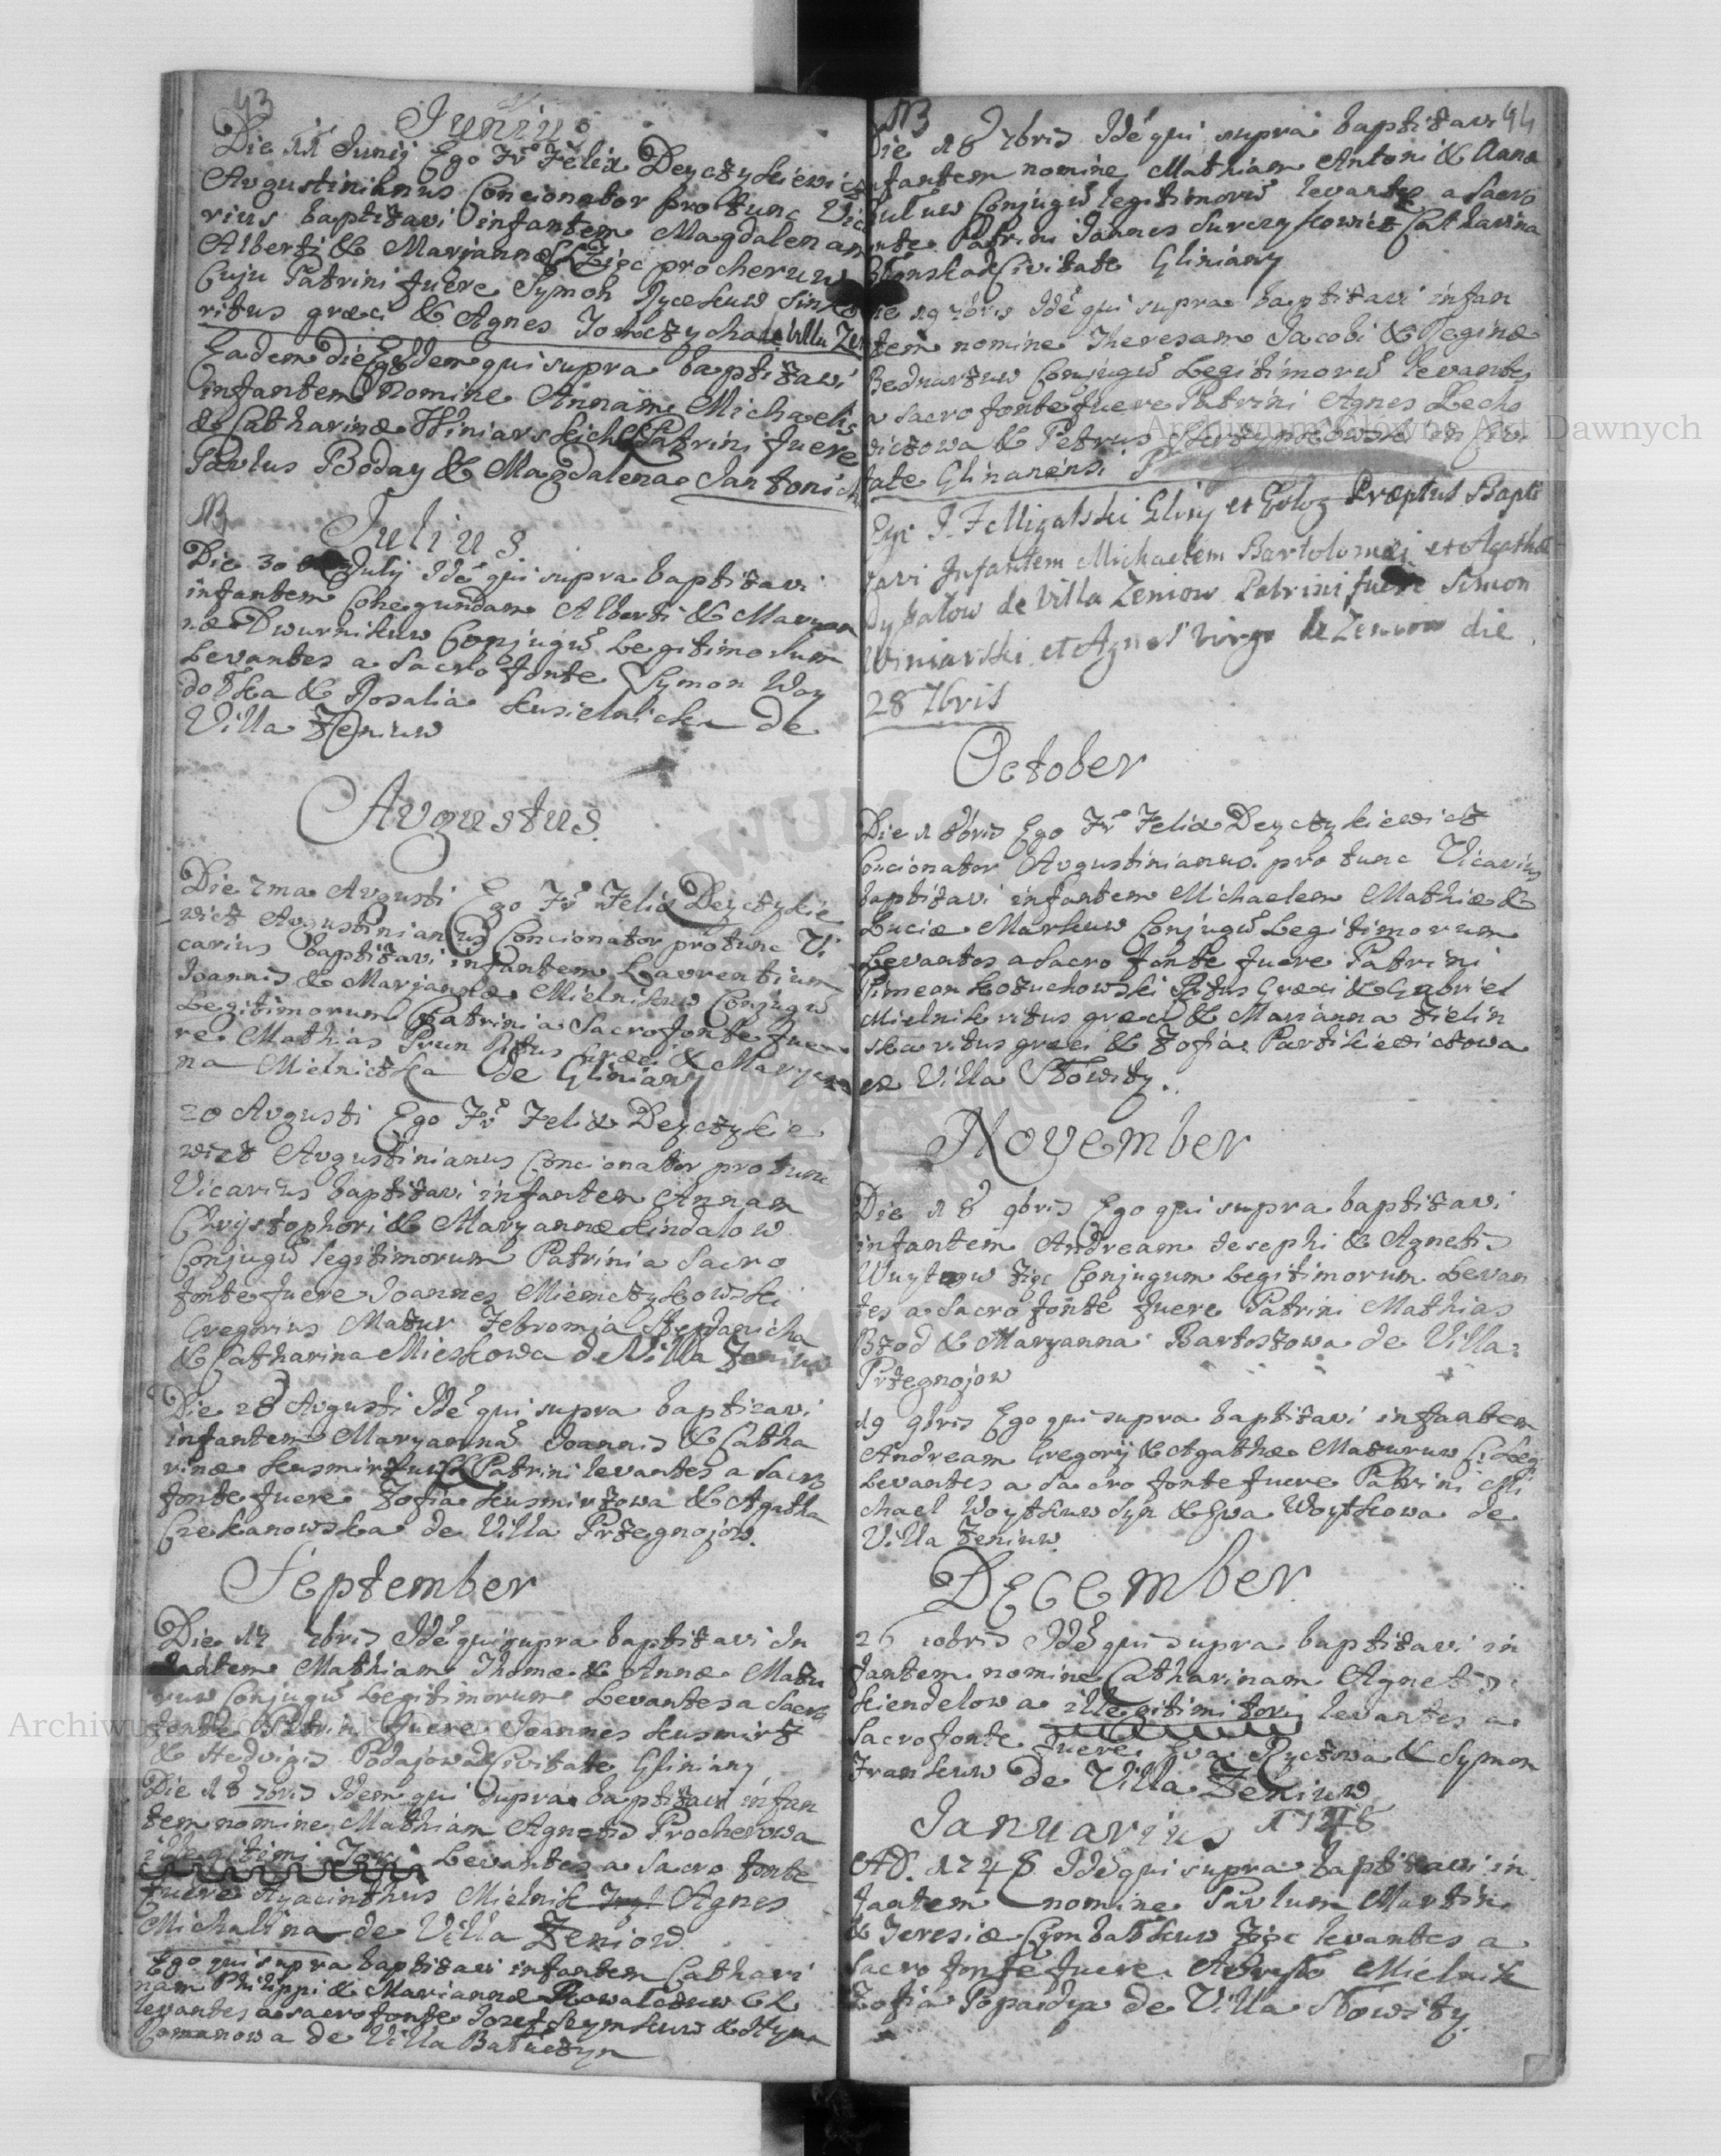 43
Junius
Die 11 Junij Ego Fr Felix Deyczykiewicz
Augustinianus Concionator pro tunc Vica
rius baptizavi infantem Magdalenam
Alberti & Marjannæ Zięc procheruw
Cuju Patrini fuere Symon
ritus græci & Agnes de Villa Zen
Eadem die Ego Idem qui supra baptizavi
infantem Nomine Annam Michaelis
& Catharinæ Winiarskich Patrini fuere
Pavlus Boday & Magdalena Jantonich
NB
Julius
Die 30 July Idē qui supra baptizavi
infantem Conegundam Alberti & Maryan
næ Dwurnikuw Conjugū Legitimorum
Levantes a Sacro fonte Symon Woy
dolka & Rosalia Kusielnicka de
Villa Zeniuw
Avgustus
Die 7ma Avgusti Ego Fr Felix Deyczykie
wicz Avgustinianus Concionator pro tunc Vi
carius baptizavi infantem Laurentium
Joannis & Marjannæ Mielnikuw Conjugū
Legitimorum Patrini a Sacro fonte fue
re Mathias Prun Ritus Græci & Maryan
na Mielniczka de Gliniany
20 Avgusti Ego Fr Felix Deyczykie
wicz Avgustinianus Concionator pro tunc
Vicarius baptizavi infantem Annam
Chrystophori & Maryannæ Kindalow
Conjugū legitimorum Patrini a Sacro
fonte fuere Joannes Miemczykowski
Gregorius Mazur Febronja Stefanicha
& Catharina Mieszkowa de Villa Zeniuw
Die 28 Avgusti Idē qui supra baptizavi
infantem Maryannā Joannis & Catha
rinæ Kusmirzuw Patrini levantes a Sacro
fonte fuere Zofia Kusmirzowa & Agatha
Czekanowska de Villa Przegnojow.
September
Die 17 7bris Idē qui supra baptizavi In
fantem Mathiam Thomæ & Annæ Mazu
ruw Conjugū Legitimorum Levantes a Sacro
fonte Patrini fuere Joannes Kusmirz
& Hedvigis Podajowa Civitate Gliniany
Die 18 7bris Idem qui supra baptizavi infan
tem nomine Mathiam Agnetis Procherowa
illegitimi Tori Levantes a Sacro fonte
fuere Hyacinthus Mielnik Agnes
Michalina de Villa Zeniow
Ego qui supra baptizavi infantem Cathari
nam Philippi & Mariannæ Kowalczuw CL
levantes a sacro fonte Jozef Szymkuw & Hyna
Romanowa de Villa Baluczyn
NB
44
Die 18 7bris Idē qui supra baptizavi
infantem nomine Mathiam Antoni & Annæ
Conjugū legitimorū levantes a Sacro
fonte Patrini Joannes Surczykowicz Catharina
Civitate Gliniany
Die 19 7bris Idē qui supra baptizavi infan
tem nomine Theresam Jacobi & Reginæ
Bednarzuw Conjugū Legitimorū levantes
a Sacro fonte fuere Patrini Agnes Lecho
wiczowa & Petrus in Civi
tate Glinanensi
Ego J. F Migalski Gliny et Præptus Bapti
zavi Infantem Michaelem Bartolomæi et Agathæ
Dyhalow de Villa Zeniow Patrini fuere Simon
Winiarski et Agnes Virgo de Zeniow die
28 7bris
October
Die 1 8bris Ego Fr Felix Deyczykiewicz
Concionator Avgustinianus pro tunc Vicarius
baptizavi infantem Michaelem Mathiæ &
Luciæ Markuw Conjugū Legitimorum
Levantes a Sacro fonte fuere Patrini
Timean Kozuchowski Ritus Græci & Gabriel
Mielnik ritus græci & Marianna Zielin
ska ritus græci & Zofia Partikiewiczowa
ex Villa Słowity.
November
Die 18 9bris Ego qui supra baptizavi
infantem Andream Josephi & Agnetis
Wuytuw Zięc Conjugum Legitimorum Levan
tes a Sacro fonte fuere Patrini Mathias
Bzod & Maryanna Bartoszowa de Villa
Przegnojow
19 9bris Ego qui supra baptizavi infantem
Andream Gregorij & Agathæ Mazuruw C: Leg:
Levantes a Sacro fonte fuere Patrini Mi
chael Woytkuw Syn & Ewa Woytkowa de
Villa Zeniuw
December
26 10bris Idē qui supra baptizavi in
fantem nomine Catharinam Agnetis
Kiendelowa illegitimi tori levantes a
Sacro fonte fuere Eva Ryczowa & Symon
Frankuw de Villa Zeniuw
Januarius 1748
AD. 1748 Idē qui supra baptizavi in
fantem nomine Pavlum Martini
& Teresiæ Cymbalkuw Zięc levantes a
Sacro fonte fuere Mielnik
Zofia Popardya de Villa Słowity.
Archiwum Główne Akt Dawnych
Archiwum Główne Akt Dawnych